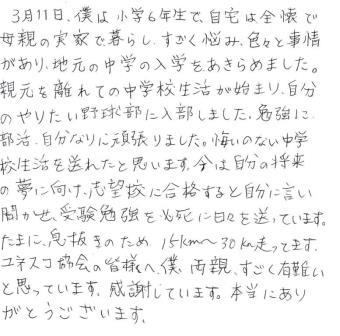 3月11日、僕は小学6年生で、自宅は全懐で
母親の実家で暮らし、すごく悩み、色々と事情
があり、地元の中学の入学をあきらめました。
親元を離れての中学校生活が始まり、自分
のやりたい野球部に入部しました。勉強に
部活、自分なりに頑張りました。悔いのない中学
校生活を送れたと思います。今は自分の将来
の夢に向け、志望校に合格すると自分に言い
聞かせ、受験勉強を必死に日々を送っています。
たまに、息抜きのため 15km〜30km走ってます。
ユネスコ協会の皆様へ、僕、両親、すごく有難い
と思っています。感謝しています。本当にあり
がとうございます。